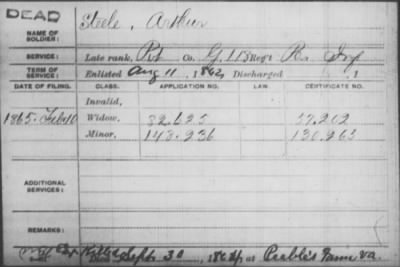 DEAD
NAME OF SOLDIER: Steele, Arthur
SERVICE: Late rank, Pvt Co. G, 118 Reg't Pa. Inf
TERM OF SERVICE: Enlisted Aug 11, 1862 Discharged , 1
DATE OF FILING. CLASS. APPLICATION NO. LAW. CERTIFICATE NO.
Invalid,
1865. Feb 10 Widow, 82.625 57.202
Minor, 148.236 130.263
ADDITIONAL SERVICES:
REMARKS:
Killed Sept 30, 1864, at Peable's Farm Va.